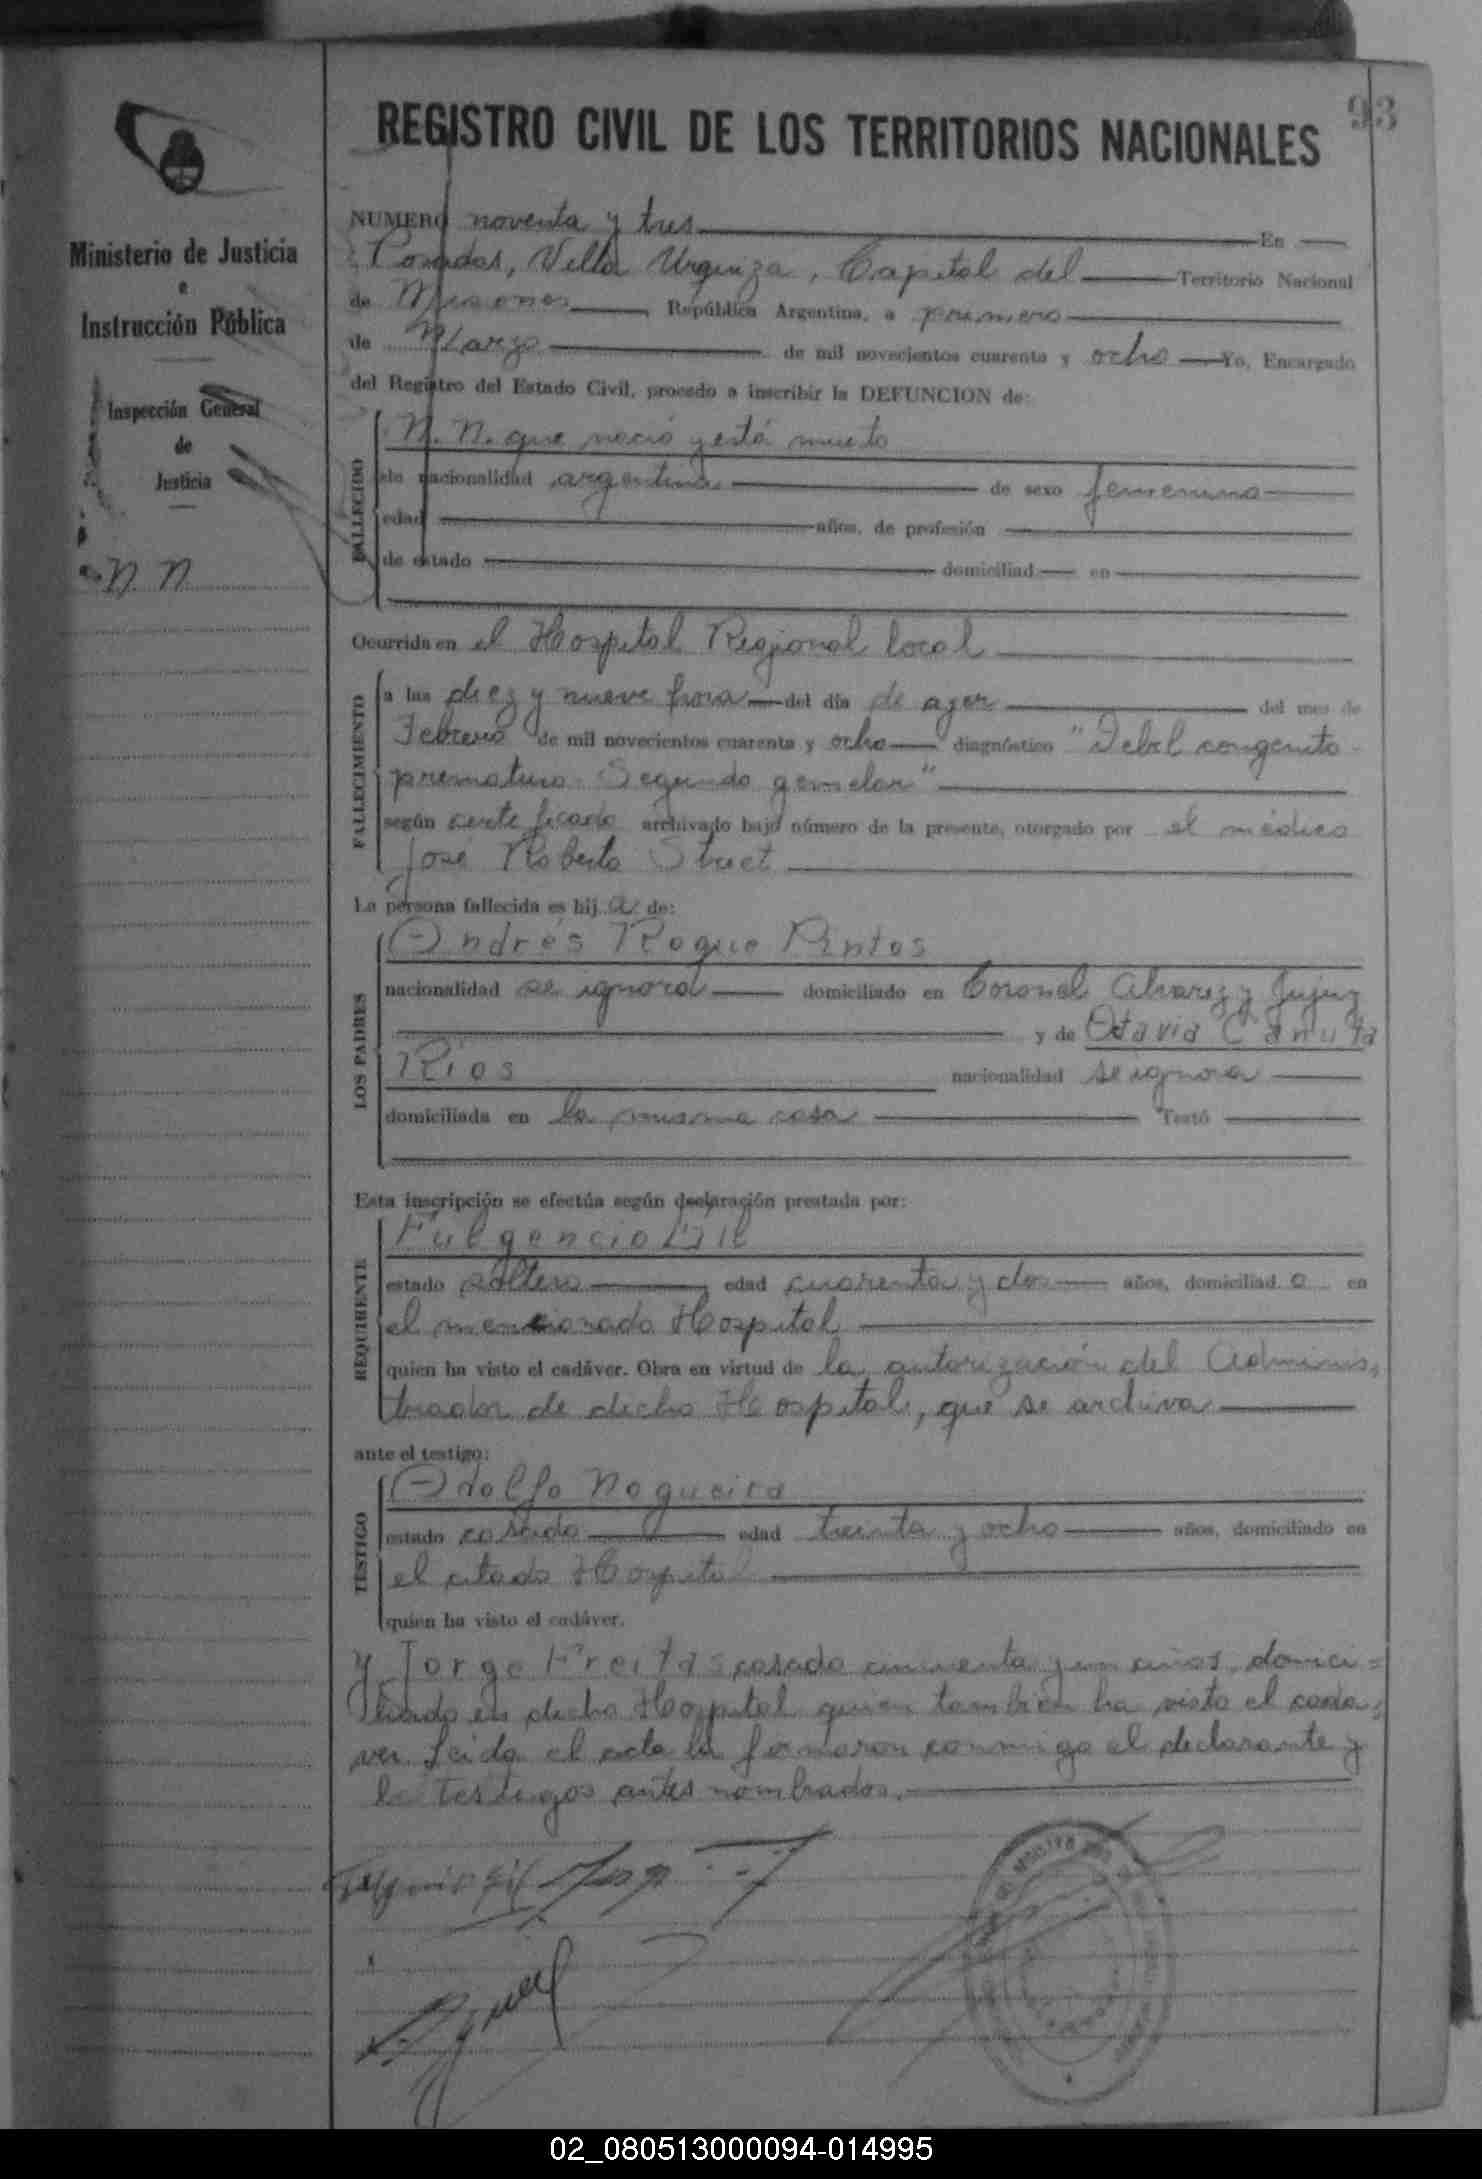 93
REGISTRO CIVIL DE LOS TERRITORIOS NACIONALES
Ministerio de Justicia
e
Instrucción Pública
Inspección General
de
Justicia
N. N.
NUMERO noventa y tres En
Posadas, Villa Urquiza, Capital del Territorio Nacional
de Misiones República Argentina, a primero
de Marzo de mil novecientos cuarenta y ocho Yo, Encargado
del Registro del Estado Civil, procedo a inscribir la DEFUNCION de:
FALLECIDO
N. N. que nació y está muerto
de nacionalidad argentina de sexo femenino
edad años, de profesión
de estado domiciliad en
Ocurrida en el Hospital Regional local
FALLECIMIENTO
a las diez y nueve hora del día de ayer del mes de
Febrero de mil novecientos cuarenta y ocho diagnóstico "Debil congenito
prematuro. Segundo gemelar"
según certificado archivado bajo número de la presente, otorgado por el médico
José Roberto
La persona fallecida es hij a de:
LOS PADRES
Andrés Roque Pintos
nacionalidad se ignora domiciliado en Coronel Alvarez y Jujuy
y de Otavia Canuta
Rios
nacionalidad se ignora
domiciliada en la misma casa Testó
Esta inscripción se efectúa según declaración prestada por:
REQUIRENTE
Fulgencio Gil
estado soltero edad cuarenta y dos años, domiciliad o en
el mencionado Hospital
quien ha visto el cadáver. Obra en virtud de la autorización del Adminis,
trador de dicho Hospital, que se archiva
ante el testigo:
TESTIGO
Adolfo Nogueira
estado casado edad treinta y ocho años, domiciliado en
el citado Hospital
quien ha visto el cadáver.
y Jorge Freitas casado cincuenta y un años, domici=
liado en dicho Hospital quien también ha visto el cada,
ver. Leida el acta la firmaron conmigo el declarante y
los testigos antes nombrados.
02_080513000094-014995